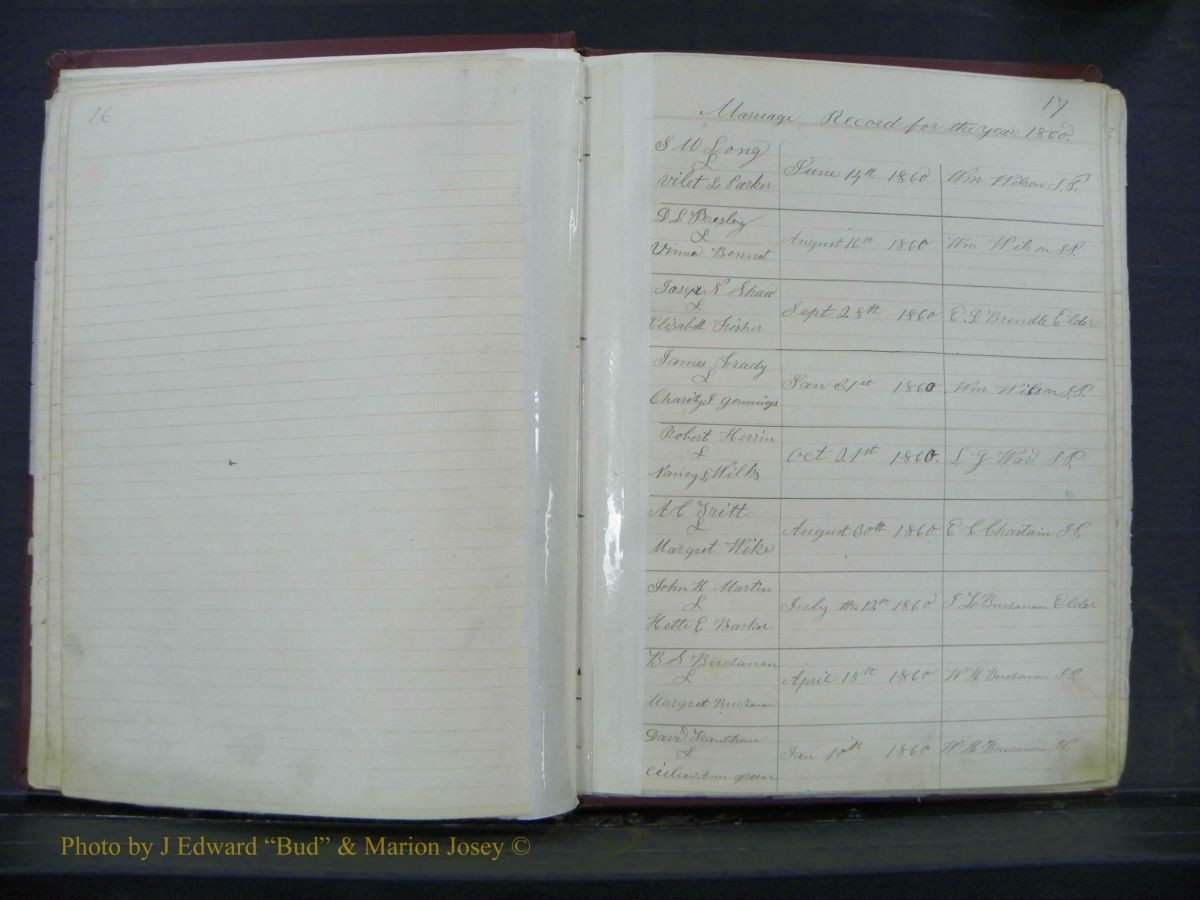 16
17
Marriage Record for the year 1860.
S W Long
&
Vilet L Parker
June 14th 1860
Wm Wilson J.P.
D L Presley
&
Vinna Bennet
August 16th 1860
Wm Wilson J.P.
Joseph N Shaw
&
Elizabeth Fisher
Sept 28th 1860
E. D Brendle Elder
James Grady
&
Charity E Jennings
Jan 31st 1860
Wm Wilson J.P.
Robert Herrin
&
Nancy L Wilks
Oct 21st 1860.
L J Ward J.P.
A C Fritt
&
Margret Wike
August 30th 1860
E C Chastain J.P.
John H Martin
&
Hette E Barker
July the 13th 1860
J L Buchanan Elder
B S Buchanan
&
Margret Buchanan
April 15th 1860
W H Buchanan J.P.
David Frantham
&
Ann green
Jan 10th 1860
W H Buchanan J.P.
Photo by J Edward “Bud” & Marion Josey ©